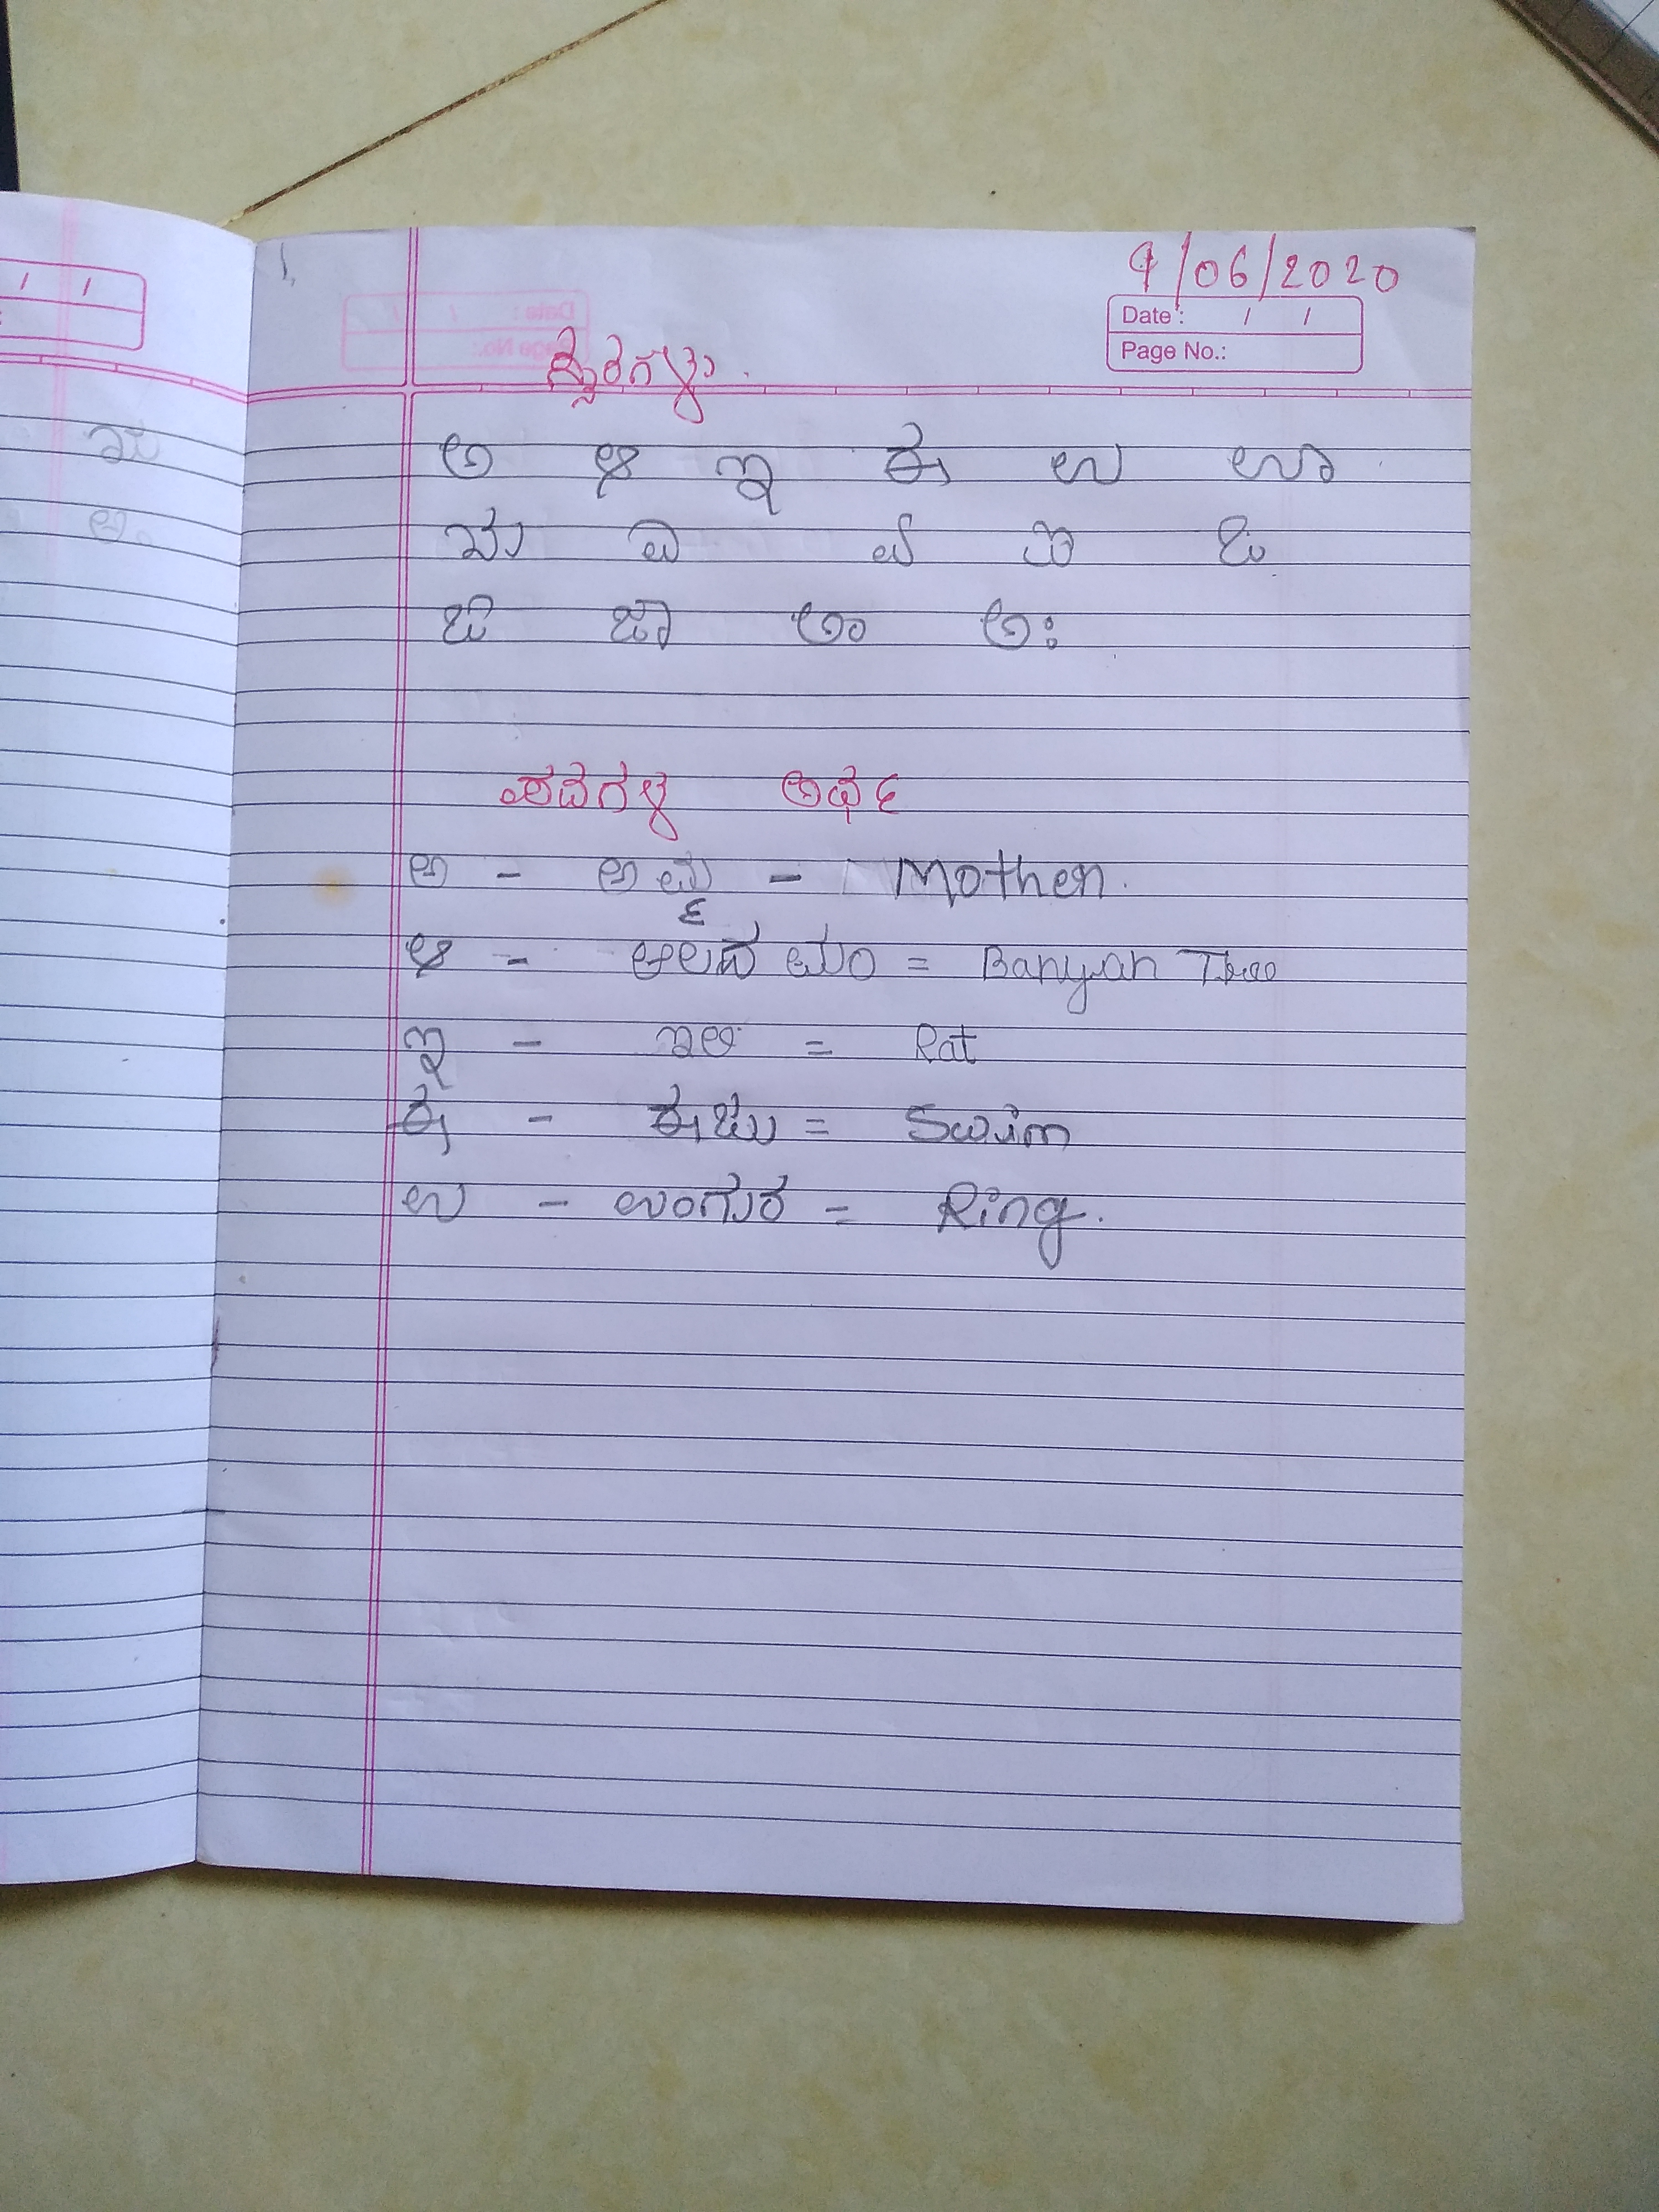 9/06/2020
Date : / /
Page No.:
ಸ್ವರಗಳು.
ಅ ಆ ಇ ಈ ಉ ಊ
ಋ ಎ ಏ ಐ ಒ
ಓ ಔ ಅಂ ಅಃ
ಪದಗಳ ಅರ್ಥ
ಅ - ಅಮ್ಮ - Mother.
ಆ - ಆಲದ ಮರ = Banyan Tree
ಇ - ಇಲಿ = Rat
ಈ - ಈಜು = Swim
ಉ - ಉಂಗುರ = Ring.